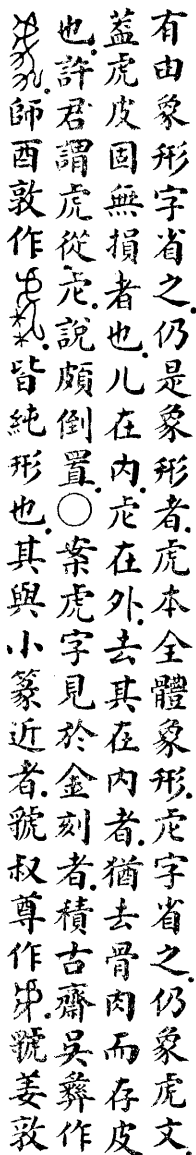 有由象形字省之仍是象形者虎本全體象形虍字省之仍象虎文
蓋虎皮固無損者也儿在内虍在外去其在内者猶去骨肉而存皮
也許君謂虎從虍說頗倒置○案虎字見於金刻者積古齋吳彝作
師酉敦作 皆純形也其與小篆近者虢叔尊作 虢姜敦